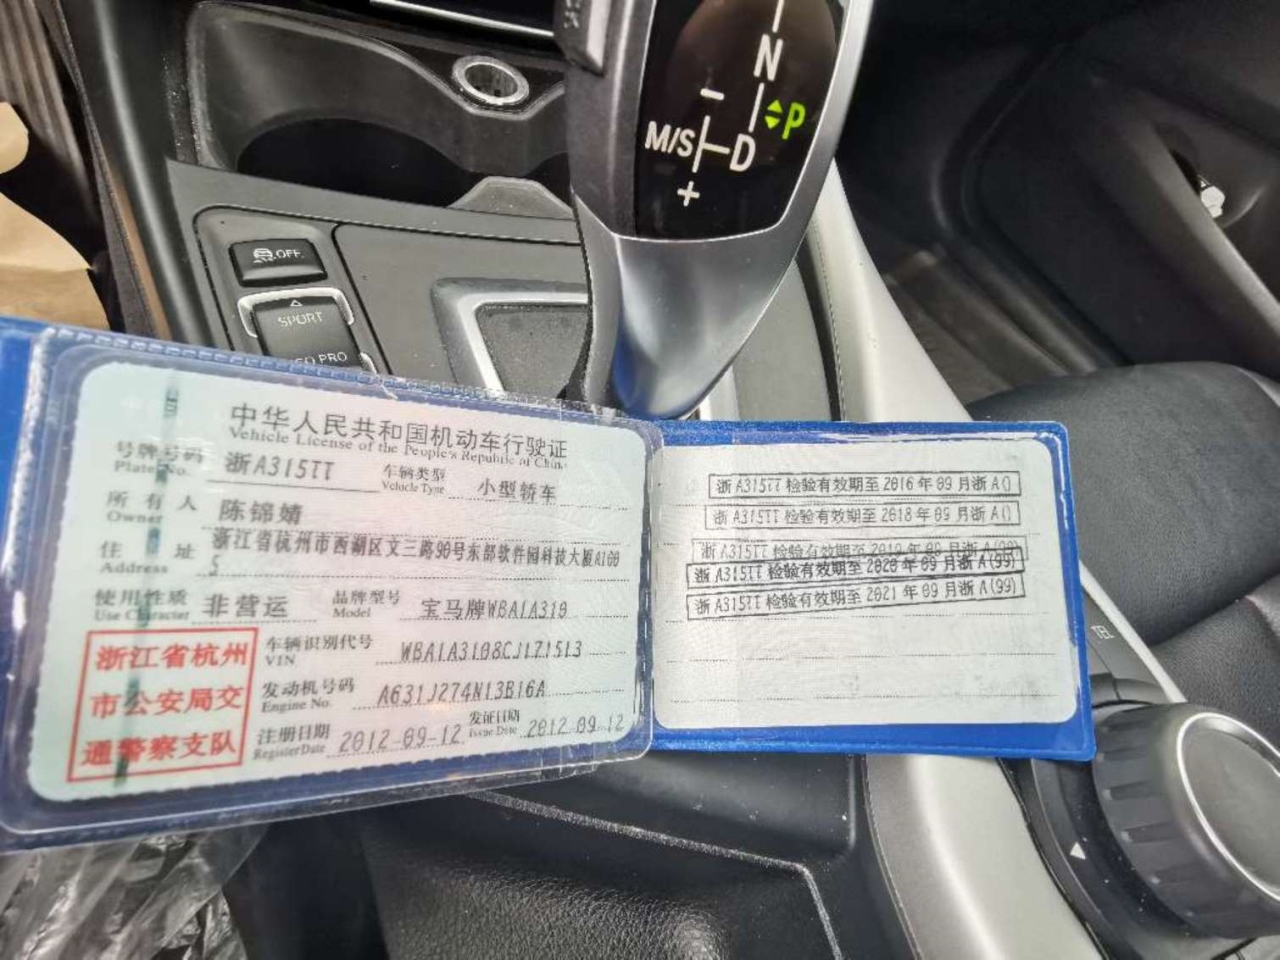 N
P
M/S
D
+
OFF
SPORT
ECO PRO
中华人民共和国机动车行驶证
Vehicle License of the People's Republic of China
号牌号码 浙A315TT 车辆类型 小型轿车
Plate No. Vehicle Type
所有人 陈锦婧
Owner
住址 浙江省杭州市西湖区文三路90号东部软件园科技大厦A100
Address 5
使用性质 非营运 品牌型号 宝马牌WBA1A310
Use Character Model
浙江省杭州
市公安局交
通警察支队
车辆识别代号 WBA1A3108CJ171513
VIN
发动机号码 A631J274N13B16A
Engine No.
注册日期 2012-09-12 发证日期 2012-09-12
Register Date Issue Date
浙A315TT检验有效期至2016年09月浙A()
浙A315TT检验有效期至2018年09月浙A()
浙A315TT检验有效期至2019年09月浙A(99)
浙A315TT检验有效期至2020年09月浙A(99)
浙A315TT检验有效期至2021年09月浙A(99)
TEL